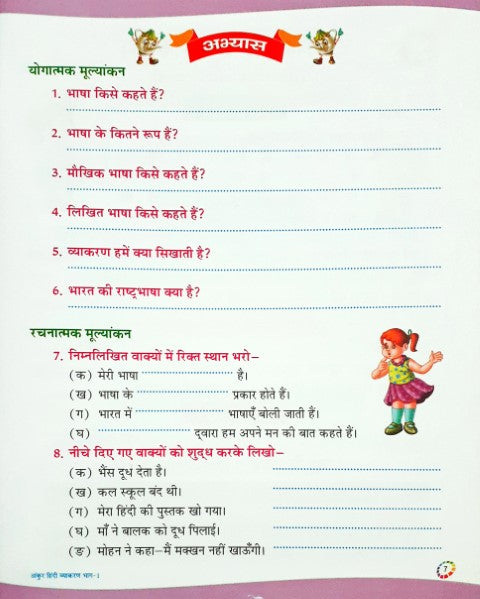 अभ्यास
योगात्मक मूल्यांकन
1. भाषा किसे कहते हैं?
2. भाषा के कितने रूप हैं?
3. मौखिक भाषा किसे कहते हैं?
4. लिखित भाषा किसे कहते हैं?
5. व्याकरण हमें क्या सिखाती है?
6. भारत की राष्ट्रभाषा क्या है?
रचनात्मक मूल्यांकन
7. निम्नलिखित वाक्यों में रिक्त स्थान भरो–
(क) मेरी भाषा ............................ है।
(ख) भाषा के ............................ प्रकार होते हैं।
(ग) भारत में ............................ भाषाएँ बोली जाती हैं।
(घ) ............................ द्वारा हम अपने मन की बात कहते हैं।
8. नीचे दिए गए वाक्यों को शुद्ध करके लिखो–
(क) भैंस दूध देता है।
(ख) कल स्कूल बंद थी।
(ग) मेरा हिंदी की पुस्तक खो गया।
(घ) माँ ने बालक को दूध पिलाई।
(ङ) मोहन ने कहा–मैं मक्खन नहीं खाऊँगी।
अंकुर हिंदी व्याकरण भाग-1
7